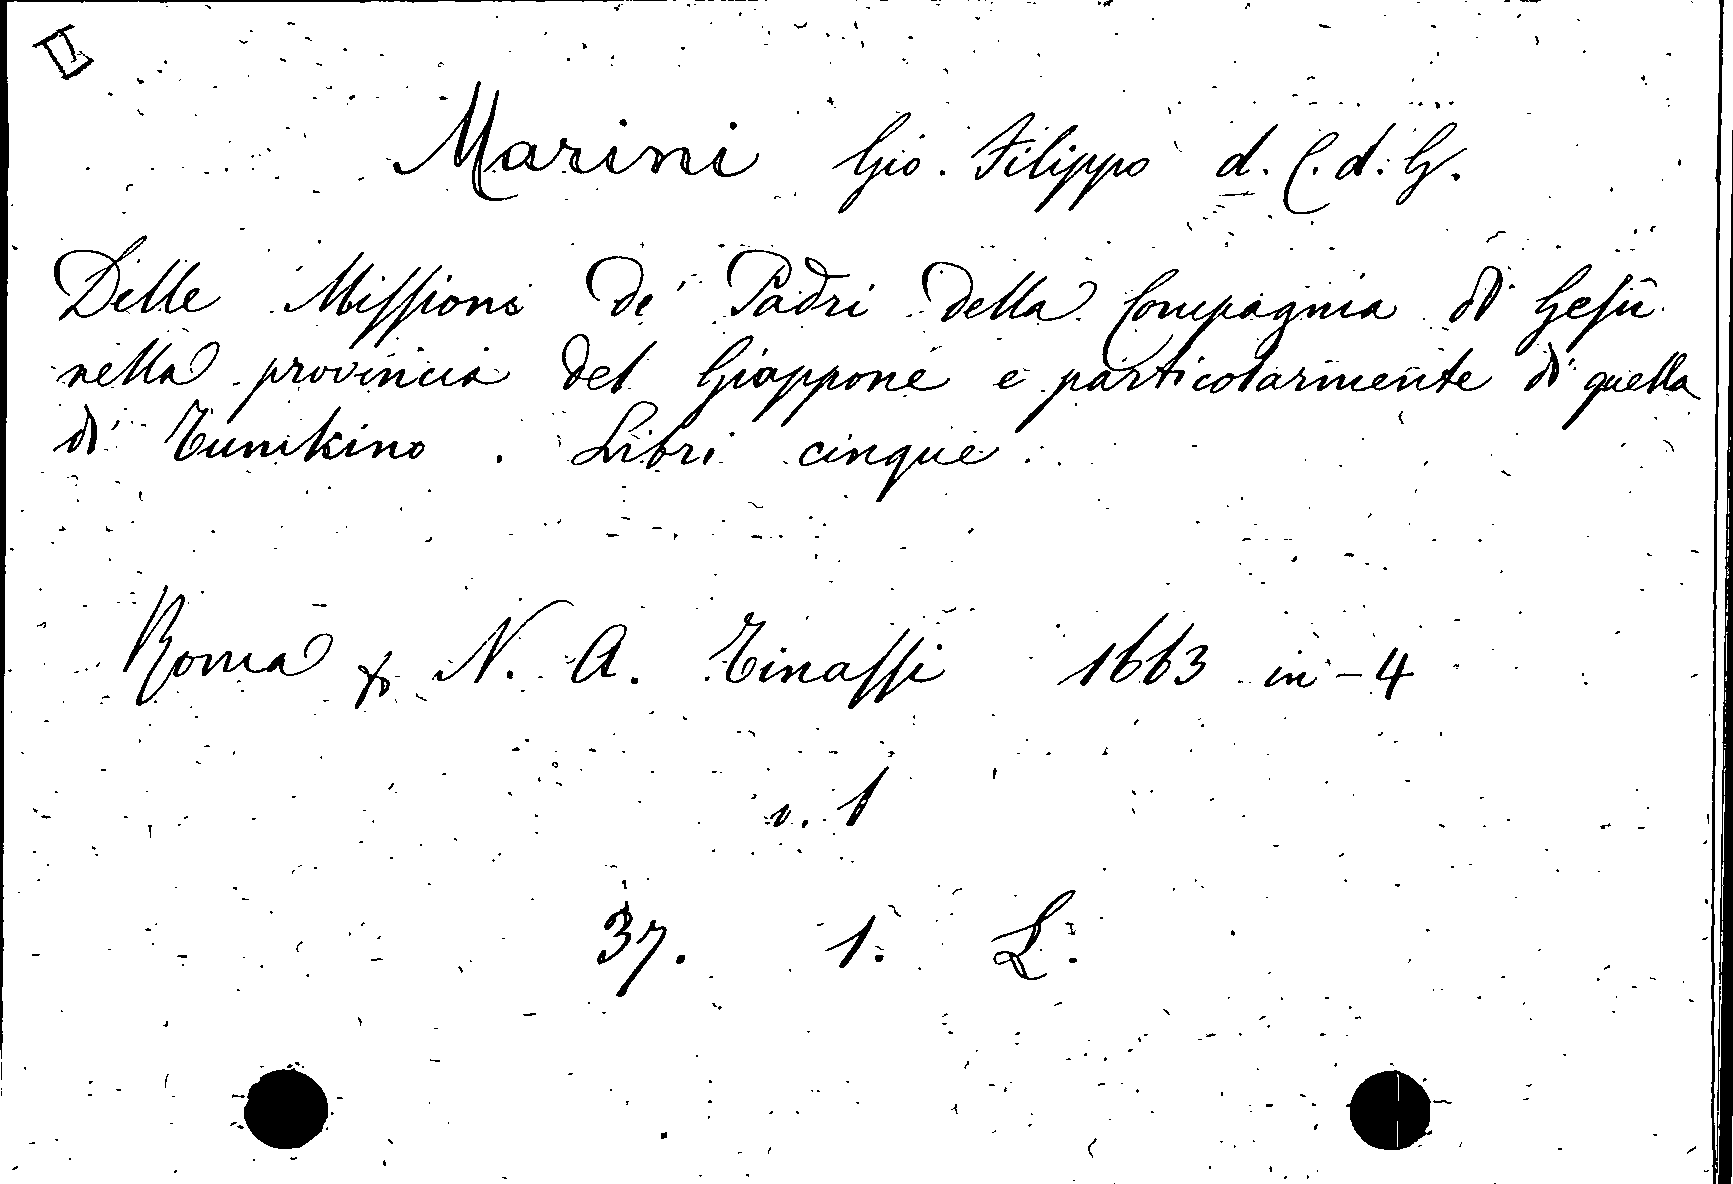 Marini Gio. Filippo d. C. d. G.
Delle Missioni de' Padri della Compagnia di Gesù
nella provincia del Giappone e particolarmente di quella
di Tumkino. Libri cinque.
Roma N. A. Tinassi 1663 in-4
v. 1
37. 1. L.